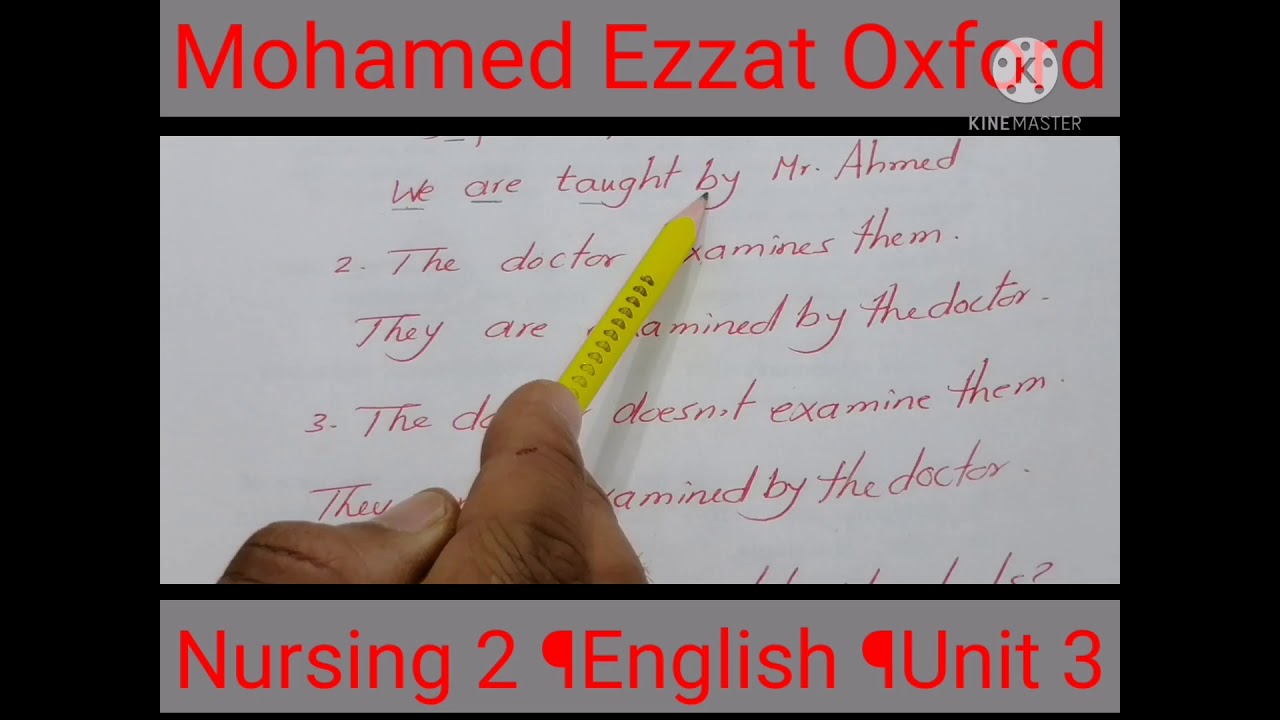 Mohamed Ezzat Oxford
K
KINEMASTER
We are taught by Mr. Ahmed
2. The doctor examines them.
They are examined by the doctor.
3. The doesn't examine them.
They examined by the doctor.
Nursing 2 ¶English ¶Unit 3